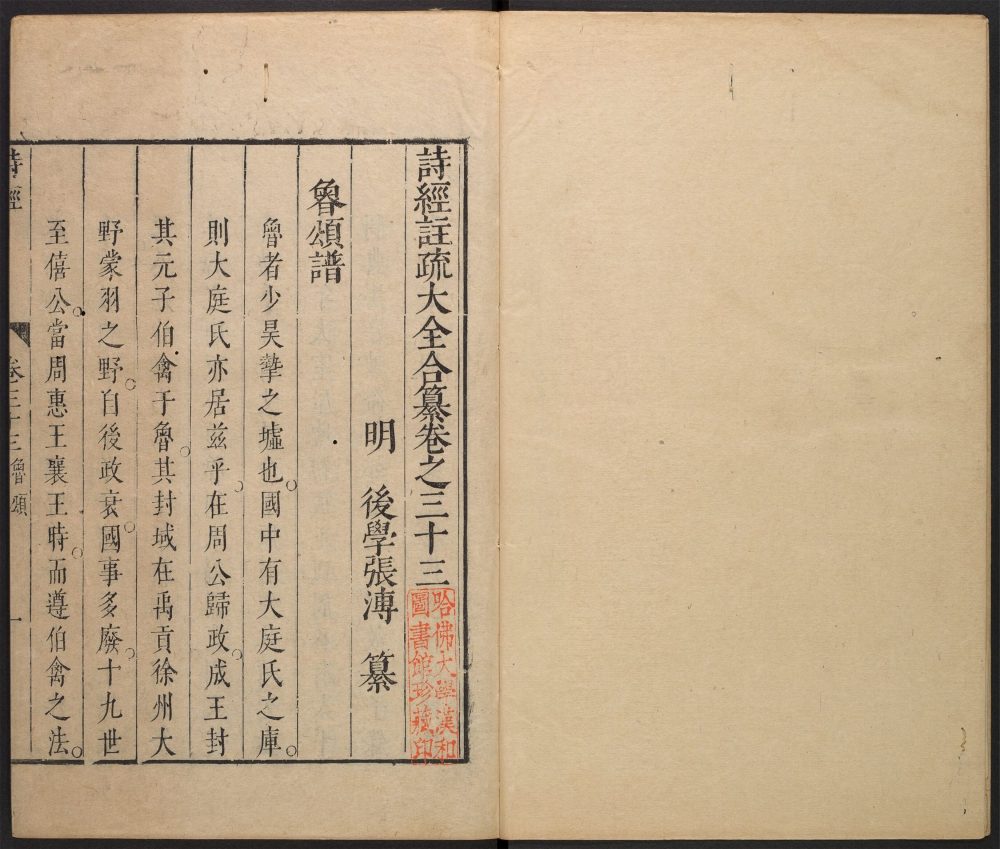 詩經註疏大全合纂卷之三十三
哈佛大學漢和
圖書館珍藏印
明 後學張溥 纂
魯頌譜
魯者少昊摯之墟也。國中有大庭氏之庫。
則大庭氏亦居茲乎。在周公歸政。成王封
其元子伯禽于魯。其封域在禹貢徐州大
野蒙羽之野。自後政衰。國事多廢。十九世
至僖公。當周惠王襄王時。而遵伯禽之法。
詩經 卷三十三魯頌 一